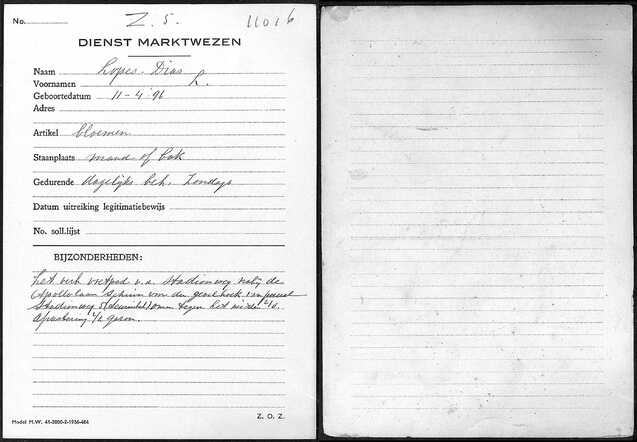 No. Z. 5. 11016
DIENST MARKTWEZEN
Naam Lopes-Dias
Voornamen L.
Geboortedatum 11-4-'91
Adres
Artikel bloemen
Staanplaats mand of bak
Gedurende dagelijks beh. Zondags
Datum uitreiking legitimatiebewijs
No. soll.lijst
BIJZONDERHEDEN:
het verh voetpad v.d. Stadionweg nabij de
Apollolaan schuin voor den
Stadionweg 5 tegen het midden
Afrastering
Model M.W. 41-2000-2-1936-486
Z. O. Z.